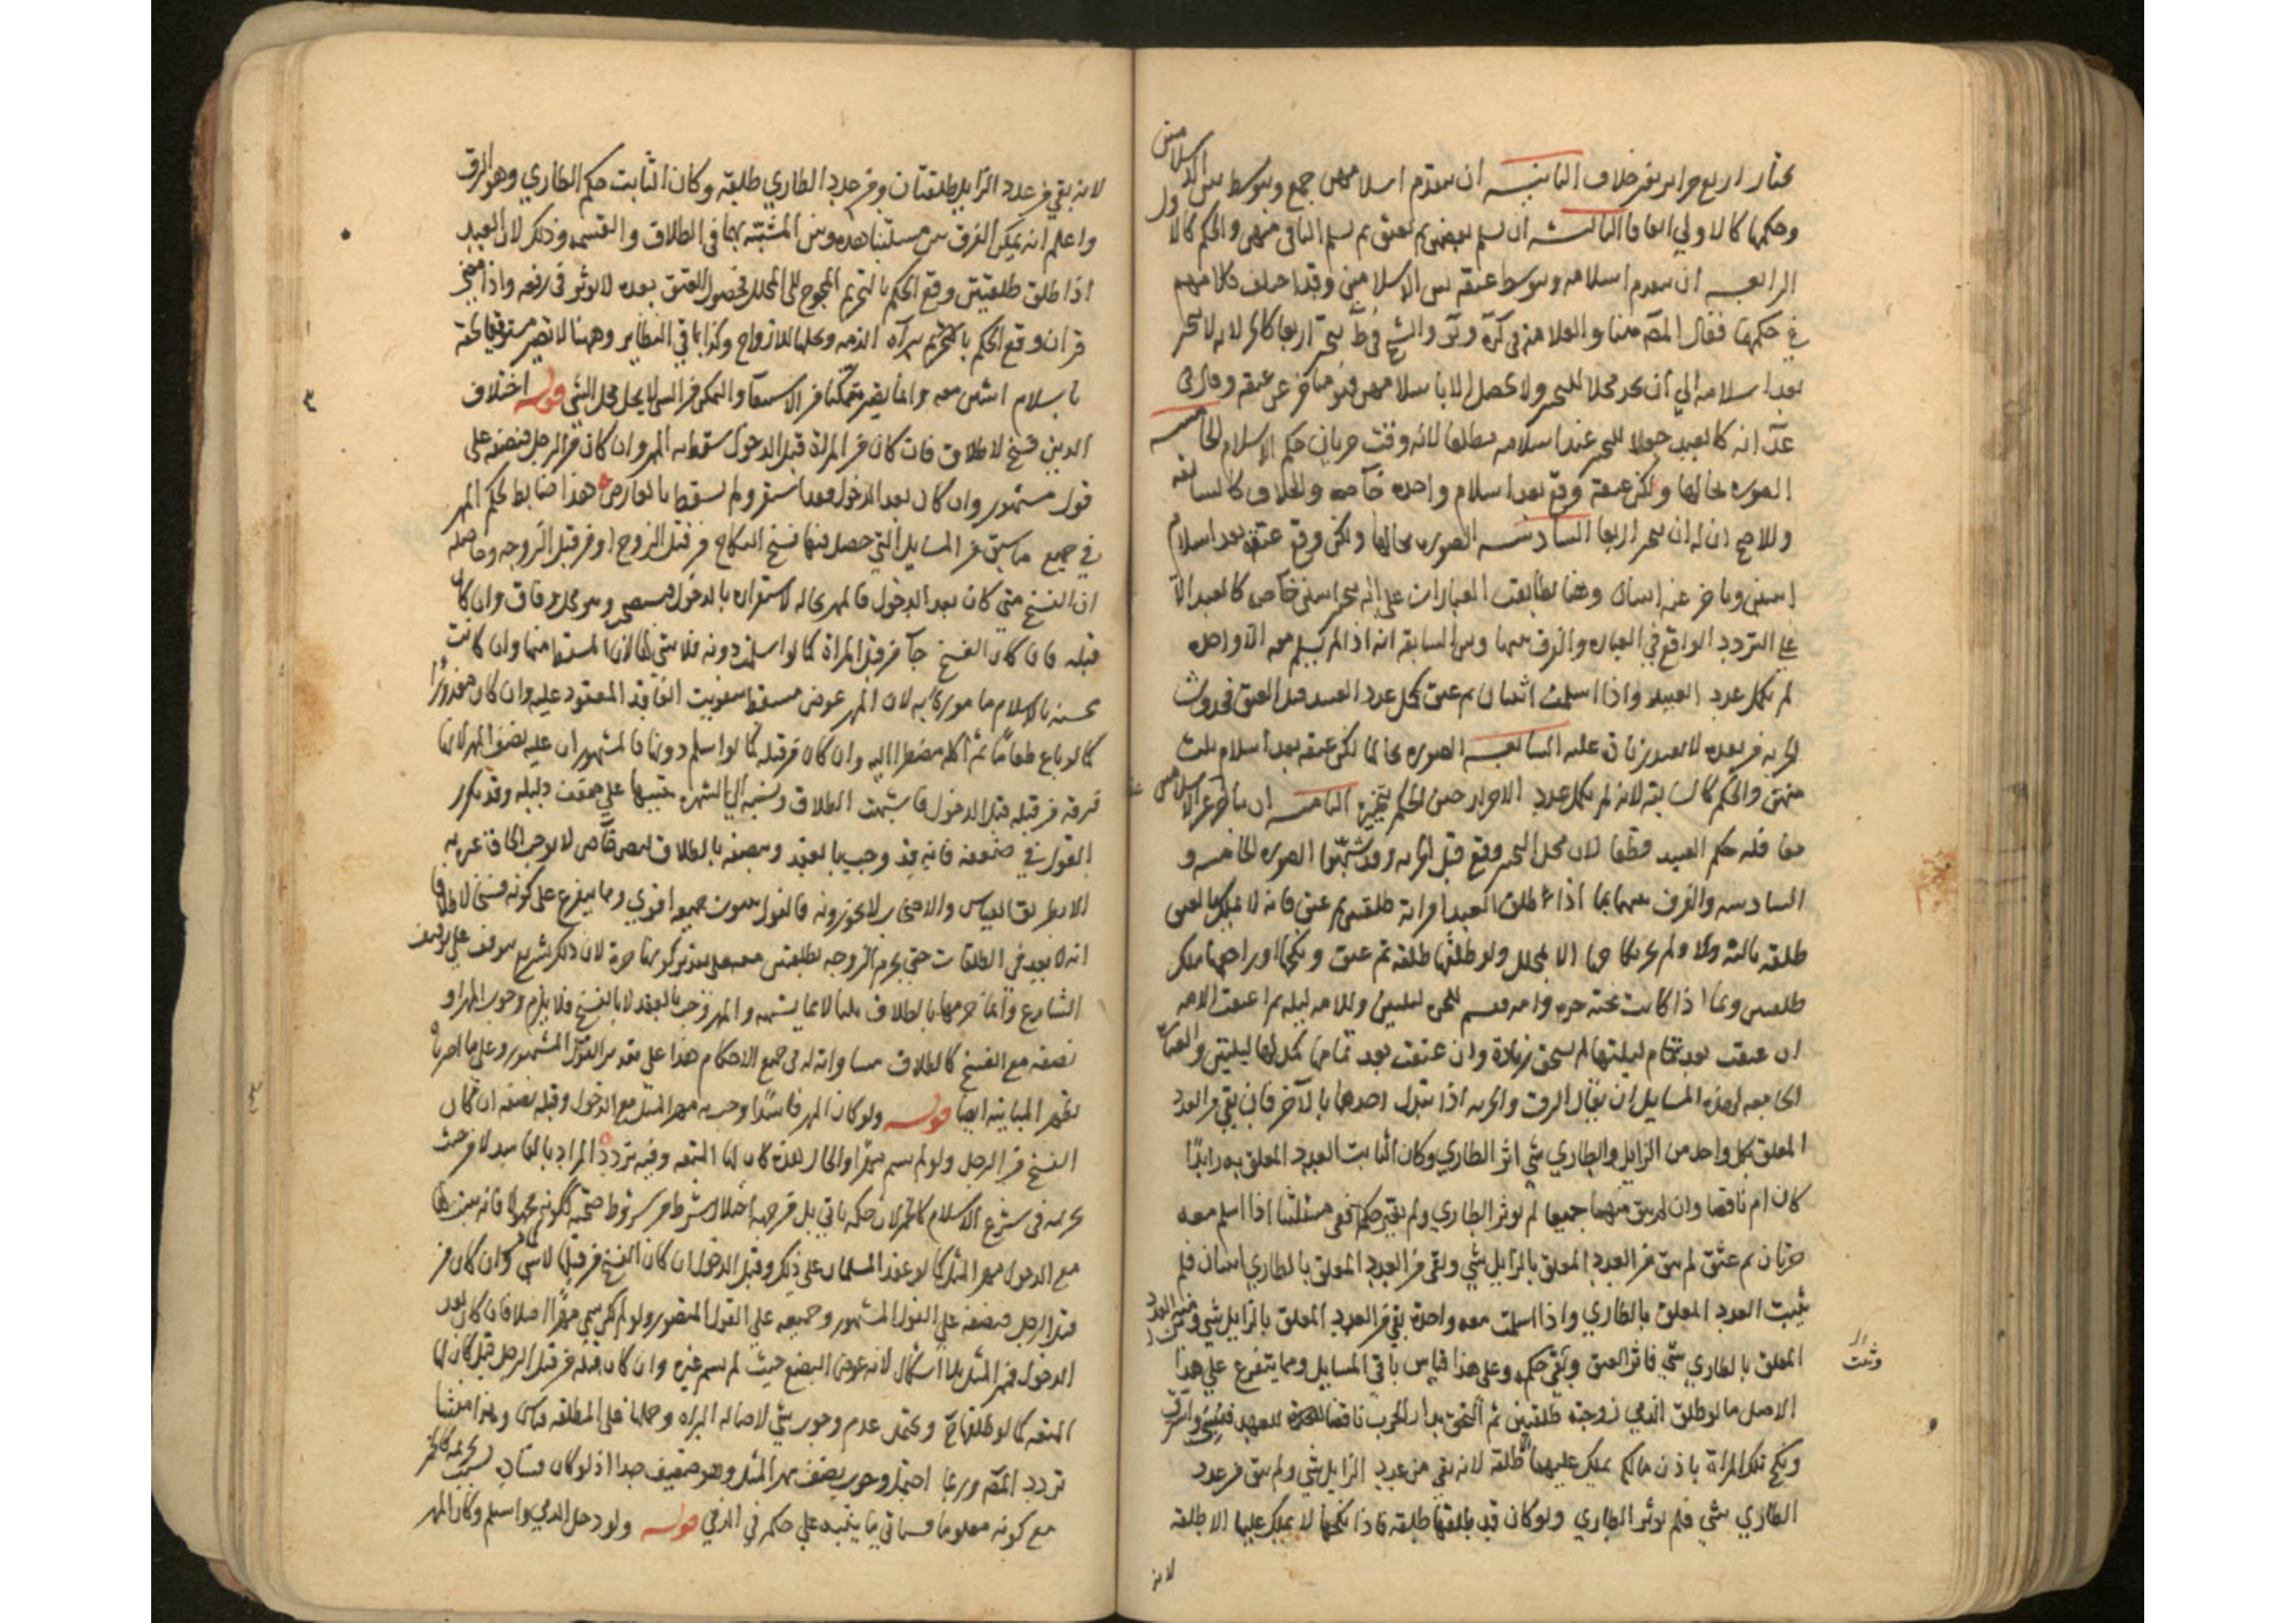 يختار اربع حراير بغير خلاف الثانيه ان يتقدم اسلامهن جميع ويتوسط بين الاسلامين
وحكمها كالاولي ايضا الثالثه ان يسلم بعضهن ثم يعتق ثم يسلم الباقي منهن والحكم كالاول
الرابعه ان يتقدم اسلامه ويتوسط عتقه بين الاسلامين وقد اختلف كلامهم
في حكمها فقال المصه هنا والعلامه في والشيخ في ط يتخير اربعا كالحر لانه لا يتخير
بعد اسلامه الي ان يجد محلا للتخير ولا يحصل الا باسلامهن فهو متاخر عن عتقه وقال في
عد انه كالعبد جعلا للتخير عند اسلامه مطلقا لانه وقت جريان حكم الاسلام الخامسه
الصوره بحالها ولكن عتقه وقع بعد اسلام واحده خاصه والخلاف كالسابقه
والاصح ان له ان يتخير اربعا السادسه الصوره بحالها ولكن وقع عتقه بعد اسلام
اثنين وتاخر عنه اثنتان وهنا تطابقت العبارات علي انه يتخير اثنتين خاصه كالعبد الا
علي التردد الواقع في العباره والفرق بينها وبين السابقه انه اذا لم يسلم معه الا واحده
لم يكمل عدد العبيد واذا اسلمت اثنتان ثم عتق كمل عدد العبيد قبل العتق فحدوث
الحريه من بعده لا يفيد زياده عليه السابعه الصوره بحالها لكن عتقه بعد اسلام ثلث
منهن والحكم كالسابقه لانه لم يكمل عدد الاحرار حين الحكم بتخيره الثامنه ان يتاخر عن الاسلامين
معا فله حكم العبيد قطعا لان محل التخير وقع قبل الحريه وقد شبهوا الصوره الخامسه و
السادسه والفرق بينهما بما اذا طلق العبد امراته طلقتين ثم عتق فانه لا يملك بالعتق
طلقه ثالثه ولم يجز نكاحها الا بمحلل ولو طلقها طلقه ثم عتق ونكحها او راجعها ملك
طلقتين وبما اذا كانت تحته حره وامه فقسم للحره ليلتين وللامه ليله ثم اعتقت الامه
ان عتقت بعد تمام ليلتها لم يستحق زيادة وان عتقت قبل تمامها كمل لها ليلتين والعباره
الجامعه لهذه المسايل ان يقال الرق والحريه اذا تبدل احدهما بالاخر فان بقي من العدد
المعلق بكل واحد من الزايل والطاري شي اثر الطاري وكان الثابت العدد المعلق به زايدا
كان ام ناقصا وان لم يبق منهما جميعا لم يوثر الطاري ولم يتغير حكم ففي مسئلتنا اذا اسلم معه
حرتان ثم عتق لم يبق من العدد المعلق بالزايل شي وبقي من العدد المعلق بالطاري اثنتان فلم
يثبت العدد المعلق بالطاري واذا اسلمت معه واحدة بقي من العدد المعلق بالزايل شي ومن العدد
المعلق بالطاري شي فاثر العتق وبقي حكمه وعلي هذا قياس باقي المسايل ومما يتفرع علي هذا
الاصل ما لو طلق الذمي زوجته طلقتين ثم التحق بدار الحرب ناقضا للعهد فسبي واسترق
ونكح تلك المراة باذن مالكه يملك عليها طلقة لانه بقي من عدد الزايل شي ولم يبق من عدد
الطاري شي فلم يوثر الطاري ولو كان قد طلقها طلقه فاذا نكحها لا يملك عليها الا طلقه
لانه
لانه بقي من عدد الزايل طلقتان ومن عدد الطاري طلقه وكان الثابت حكم الطاري وهو الرق
واعلم انه يمكن الفرق بين مسئلتنا هذه وبين المشبه بها في الطلاق والقسمه وذلك لان العبد
اذا طلق طلقتين وقع الحكم بالتحريم المحوج الي المحلل فحصول العتق بعده لا يوثر في رفعه واذا
قران وقع الحكم بالتحريم ببراه الذمه وحلها للازواج وكذا باقي النظاير وهنا لا تصير مستوفيا حقه
باسلام اثنتين معه وانما يصير متمكنا من الاستيفا والتمكن من الشي لا يحل محل الشي قوله اختلاف
الدين فسخ لا طلاق فان كان من المراة قبل الدخول سقط به المهر وان كان من الرجل فنصفه علي
قول مشهور وان كان بعد الدخول فقد استقر ولم يسقط بالعارض هذا ضابط لحكم المهر
في جميع ما سبق من المسايل التي حصل فيها فسخ النكاح من قبل الزوج او من قبل الزوجه وحاصله
ان الفسخ متي كان بعد الدخول فالمهر بحاله لاستقراره بالدخول فيستصحب وهو محل وفاق وان كان
قبله فان كان الفسخ جا من قبل المراة كما لو اسلمت دونه فلا شي لها لان المسقط منها وان كانت
محسنه بالاسلام مامورة به لان المهر عوض فسقط بتفويت العاقد المعقود عليه وان كان معذورا
كما لو باع طعاما ثم اكله مضطرا اليه وان كان من قبله كما لو اسلم دونها فالمشهور ان عليه نصف المهر لانها
فرقه من قبله قبل الدخول فاشبهت الطلاق ونسبه الي الشهره تنبيها علي ضعف دليله وقد تكرر
القول في ضعفه فانه قد وجب بالعقد وتنصفه بالطلاق لنص خاص لا يوجب الحاق غيره به
الا بطريق القياس والاصحاب لا يجوزونه فالقول بثبوت جميعه اقوي ومما يتفرع علي كونه فسخا لا طلاقا
انه لا يعد في الطلقات حتي يحرم الزوجه
الشارع وانما حرمها بالطلاق قلنا لا بما يشبهه والمهر وجب بالعقد لا بالفسخ فلا يلزم وجوب المهر او
نصفه مع الفسخ كالطلاق مساواته له في جميع الاحكام هذا علي تقدير القول المشهور وعلي ما اخترناه
تظهر المباينه ايضا قوله ولو كان المهر فاسدا وجب به مهر المثل مع الدخول وقبله نصفه ان كان
الفسخ من الرجل ولو لم يسم مهرا والحال هذه كان لها المتعه وفيه تردد المراد بالفاسد لا من حيث
تحريمه في شرع الاسلام كالخمر لان حكمه ياتي بل من جهة اختلال شرط من شروط صحته ككونه مجهولا فانه يثبت لها
مع الدخول مهر المثل كما لو عقد المسلمان علي ذلك وقبل الدخول ان كان الفسخ من قبلها لا شي لها وان كان من
قبل الرجل فنصفه علي القول المشهور وجميعه علي القول المنصور ولو لم يكن سمي مهرا اصلا فان كان بعد
الدخول فمهر المثل بلا اشكال لانه عوض البضع حيث لم يسم غيره وان كان قبله من قبل الرجل قيل كان لها
المتعه كما لو طلقها ح ويحتمل عدم وجوب شي لاصاله البراه وحملها علي المطلقه قياس وهذا منشا
تردد المصه وربما احتمل وجوب نصف مهر المثل وهو ضعيف جدا اذ لو كان فساده بسبب تحريمه كالخمر
مع كونه معلوما فسياتي ما ينبه علي حكمه في الذمي قوله ولو دخل الذمي واسلم وكان المهر